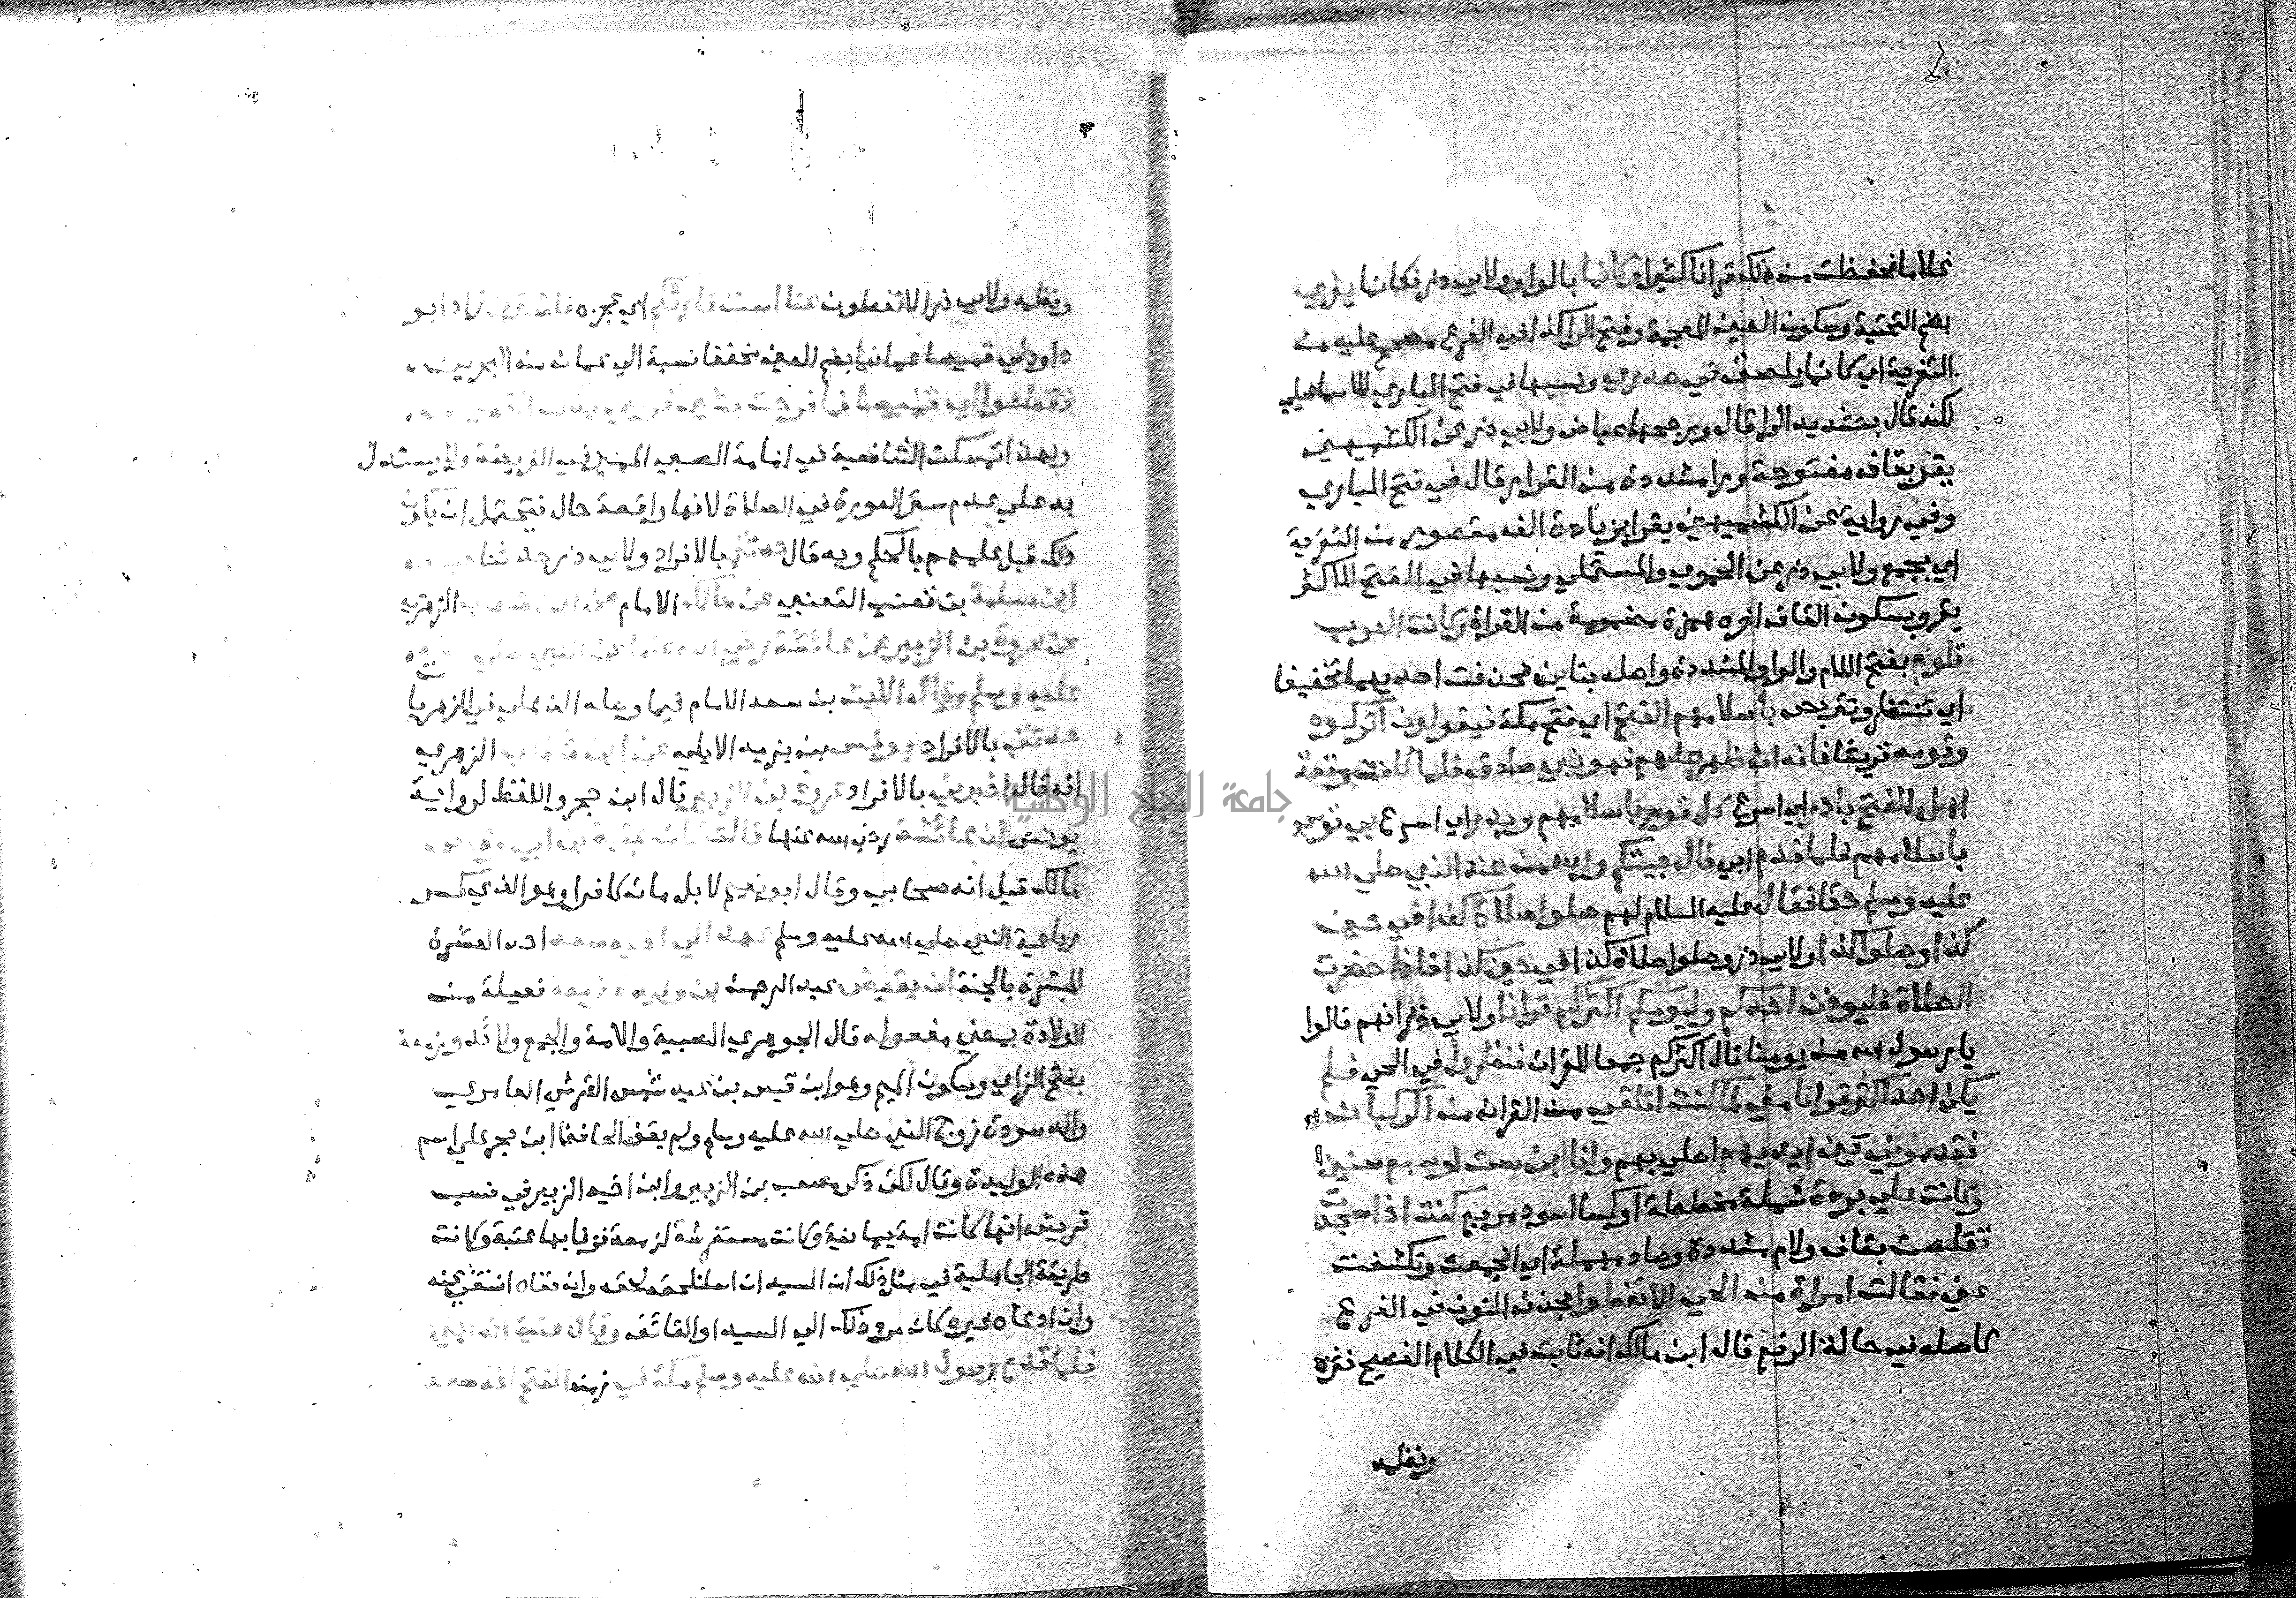 فحفظت من ذلك قرانا كثيرا وكانما بالواو ولابي ذر فكانما يغري
بضم التحتية وسكون الغين المعجمة وفتح الراكذا في الفرع مصحح عليه من
التغرية اي كانما يلصق في صدري ونسبها في فتح الباري للاسماعيلي
لكنه قال بتشديد الرا قال ورجحها عياض ولابي ذر عن الكشميهني
يقر بقاف مفتوحة ورا مشددة من القرار قال في فتح الباري
وفي رواية عن الكشميهني يقرا بزيادة الف مقصور من التقرية
اي يجمع ولابي ذر عن الحموي والمستملي ونسبها في الفتح للاكثر
يقرو بسكون القاف اخره همزة مضمومة من القراة وكانت العرب
تلوم بفتح اللام والواو المشددة واصله بتاين فحذفت احديهما تخفيفا
اي تنتظر وتتربص باسلامهم الفتح اي فتح مكة فيقولون اتركوه
وقومه قريشا فانه ان ظهر عليهم فهو نبي صادق فلما كانت وقعة
اهل الفتح بادر اي اسرع كل قوم باسلامهم وبدر اي اسرع بي قومي
باسلامهم فلما قدم ابي قال جيتكم والله من عند النبي صلي الله
عليه وسلم حقا فقال عليه السلام لهم صلوا صلاة كذا في حين
كذا وصلوا كذا ولابي ذر وصلوا صلاة كذا في حين كذا فاذا حضرت
الصلاة فليوذن احدكم وليومكم اكثركم قرانا ولابي ذر انهم قالوا
يا رسول الله من يومنا قال اكثركم جمعا للقران فنظروا في الحي فلم
يكن احد اكثر قرانا مني لما كنت اتلقي من القران من الركبان
فقدموني بين ايديهم اصلي بهم وانا ابن ست او سبع سنين
وكانت علي بردة شملة مخططة او كسا اسود مربع كنت اذا سجدت
تقلصت بقاف ولام مشددة وصاد مهملة اي انجمعت وتكشفت
عني فقالت امراة من الحي الا تغطوا بحذف النون في الفرع
كاصله في حالة الرفع قال ابن مالك انه ثابت في الكلام الفصيح نثره
ونظمه
ونظمه ولابي ذر الا تغطون عنا است قارئكم اي عجزه فاشتروا زاد ابو
داود لي قميصا عمانيا بضم العين مخففا نسبة الي عمان من البحرين
فقطعوا لي قميصا فما فرحت بشي فرحي بذلك القميص
وبهذا تمسكت الشافعية في امامة الصبي المميز في الفريضة ولا يستدل
به علي عدم ستر العورة في الصلاة لانها واقعة حال فيحتمل ان يكون
ذلك قبل علمهم بالحكم وبه قال حدثني بالافراد ولابي ذر حدثنا
ابن مسلمة بن قعنب القعنبي عن مالك الامام عن ابن شهاب الزهري
عن عروة بن الزبير عن عائشة رضي الله عنها عن النبي صلي
عليه وسلم وقال الليث بن سعد الامام فيما وصله الذهلي في الزهريات
حدثني بالافراد يونس بن يزيد الايلي عن ابن شهاب الزهري
انه قال اخبرني بالافراد عروة بن الزبير قال ابن حجر واللفظ لرواية
يونس ان عائشة رضي الله عنها قالت كان عتبة بن ابي وقاص
مالك قيل انه صحابي وقال ابو نعيم لا بل مات كافرا وهو الذي كسر
رباعية النبي صلي الله عليه وسلم عهد الي اخيه سعد احد العشرة
المبشرة بالجنة ان يقبض عبد الرحمن بن وليدة زمعة فعيلة من
الولادة بمعني مفعوله قال الجوهري الصبية والامة والجمع ولائد وزمعة
بفتح الزاي وسكون الميم وهو ابن قيس بن عبد شمس القرشي العامري
والد سودة زوج النبي صلي الله عليه وسلم ولم يقف الحافظ ابن حجر علي اسم
هذه الوليدة وقال لكن ذكر مصعب بن الزبير وابن اخيه الزبير في نسب
قريش انها كانت امة يمانية وكانت مستفرشة لزمعة فزنا بها عتبة وكانت
طريقة الجاهلية في مثل ذلك ان السيد ان استلحقه لحقه وان نفاه انتفي عنه
وان ادعاه غيره كان مرد ذلك الي السيد او القائف وقال عتبة انه ابني
فلما قدم رسول الله صلي الله عليه وسلم مكة في زمن الفتح اخذ سعد
جامعة النجاح الوطنية